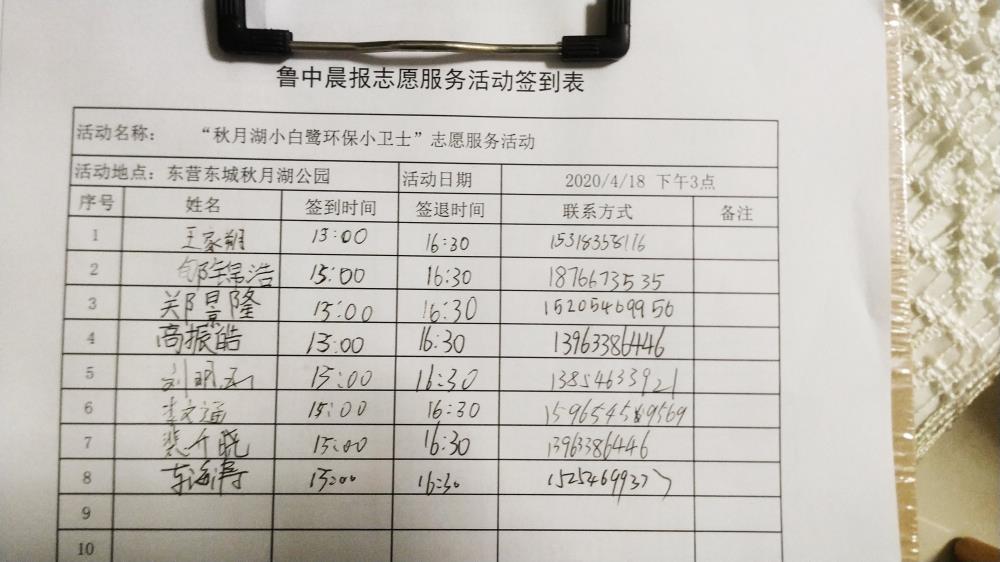 鲁中晨报志愿服务活动签到表
活动名称： “秋月湖小白鹭环保小卫士”志愿服务活动
活动地点：东营东城秋月湖公园 活动日期 2020/4/18 下午3点
序号 姓名 签到时间 签退时间 联系方式 备注
1 王家翔 15:00 16:30 15318358176
2 15:00 16:30 1876673535
3 郑景隆 15:00 16:30 15205469956
4 高振皓 15:00 16:30 13963386446
5 15:00 16:30 13854633921
6 李文通 15:00 16:30
7 15:00 16:30 13963386446
8 15:00 16:30
9
10